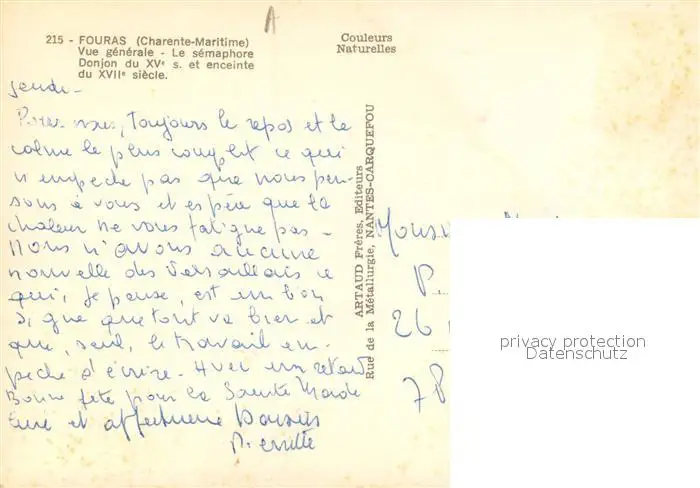 A
215 - FOURAS (Charente-Maritime)
Vue générale - Le sémaphore
Donjon du XVe s. et enceinte
du XVIIe siècle.
Couleurs
Naturelles
jeudi -
Pour nous, toujours le repos et le
calme le plus complet ce qui
n'empeche pas que nous pen-
sons à vous et espère que la
chaleur ne vous fatigue pas -
Nous n'avons aucune
nouvelle des Versaillais ce
qui, je pense, est un bon
signe que tout va bien et
que, seul, le travail em-
peche d'écrire - Avec un retard
Bonne fête pour la Sainte Marie
et affectueux Baisers
Pierrette
ARTAUD Frères, Editeurs
Rue de la Métallurgie, NANTES-CARQUEFOU
P.
26
78
privacy protection
Datenschutz